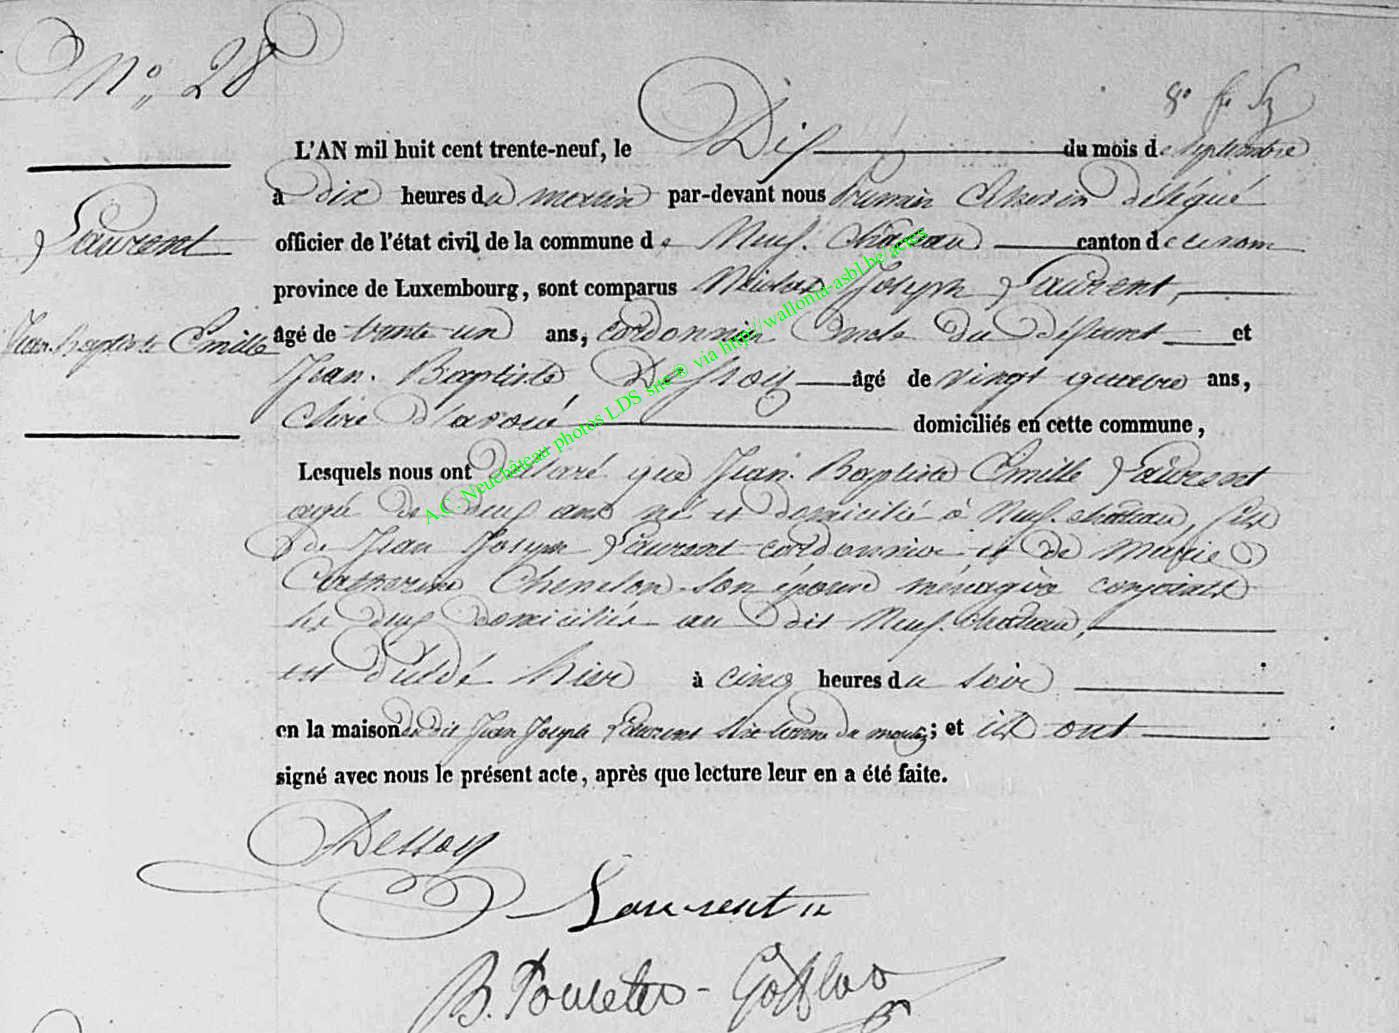 N° 28
L'AN mil huit cent trente-neuf, le Dix du mois de septembre
à dix heures du matin par-devant nous premier Echevin délégué
officier de l'état civil de la commune de Neuf-Château canton de ce nom
Laurent
province de Luxembourg, sont comparus Nicolas Joseph Laurent,
Jean-Baptiste Emille
âgé de trente un ans, cordonnier Oncle du défunt et
Jean-Baptiste Dessoy âgé de vingt quatre ans,
clerc d'avoué domiciliés en cette commune,
Lesquels nous ont déclaré que Jean-Baptiste Emille Laurent
agé de deux ans né et domicilié à Neuf-château, fils
de Jean Joseph Laurent cordonnier et de Marie
Catherine son épouse ménagère conjoints
les deux domiciliés au dit Neuf-château,
est décédé hier à cinq heures du soir
en la maison du dit Jean Joseph Laurent ; et ils ont
signé avec nous le présent acte, après que lecture leur en a été faite.
Dessoy
Laurent
B. Poncelet-
A.C. Neuchâteau photos LDS site® via http://wallonia-asbl.be/actes